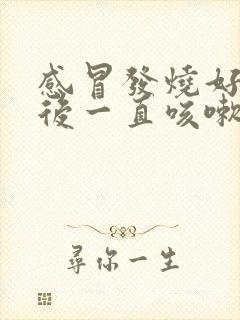 感冒發燒好
後一直咳嗽
尋你一生